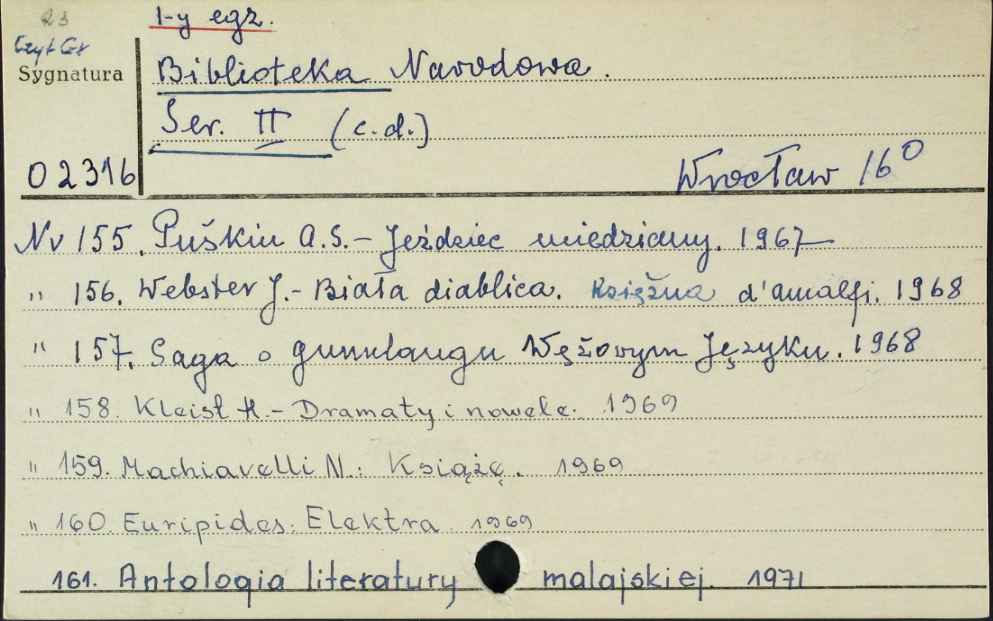 23
1-y egz.
Czyt Gł
Sygnatura
Biblioteka Narodowa.
Ser. II (c.d.)
02316
Wrocław 16⁰
Nr 155. Puškin A.S. – Jeździec miedziany. 1967
" 156. Webster J. – Biała diablica. Księżna d'amalfi. 1968
" 157. Saga o gunnlaugu Wężovym Języku. 1968
" 158. Kleist H. – Dramaty i nowele. 1969
" 159. Machiavelli N.: Książę. 1969
" 160. Euripides: Elektra 1969
161. Antologia literatury malajskiej. 1971